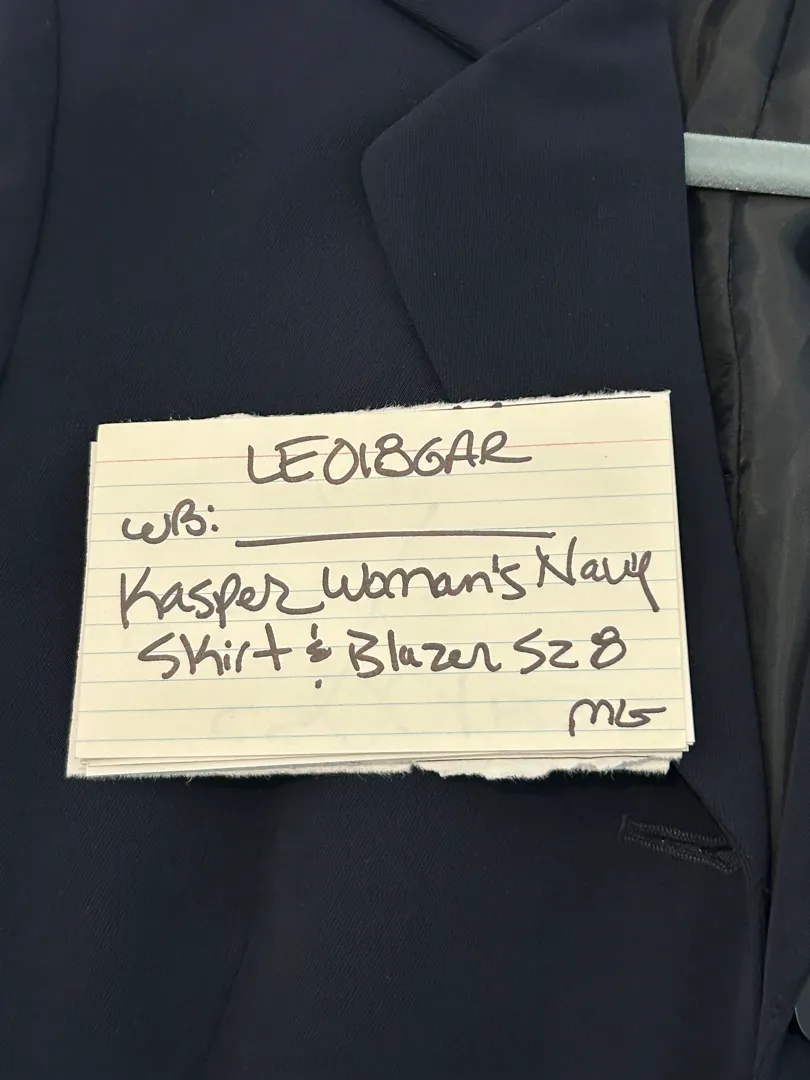 LE018GAR
WB: ____________
Kasper Woman's Navy
Skirt & Blazer Sz 8
MG